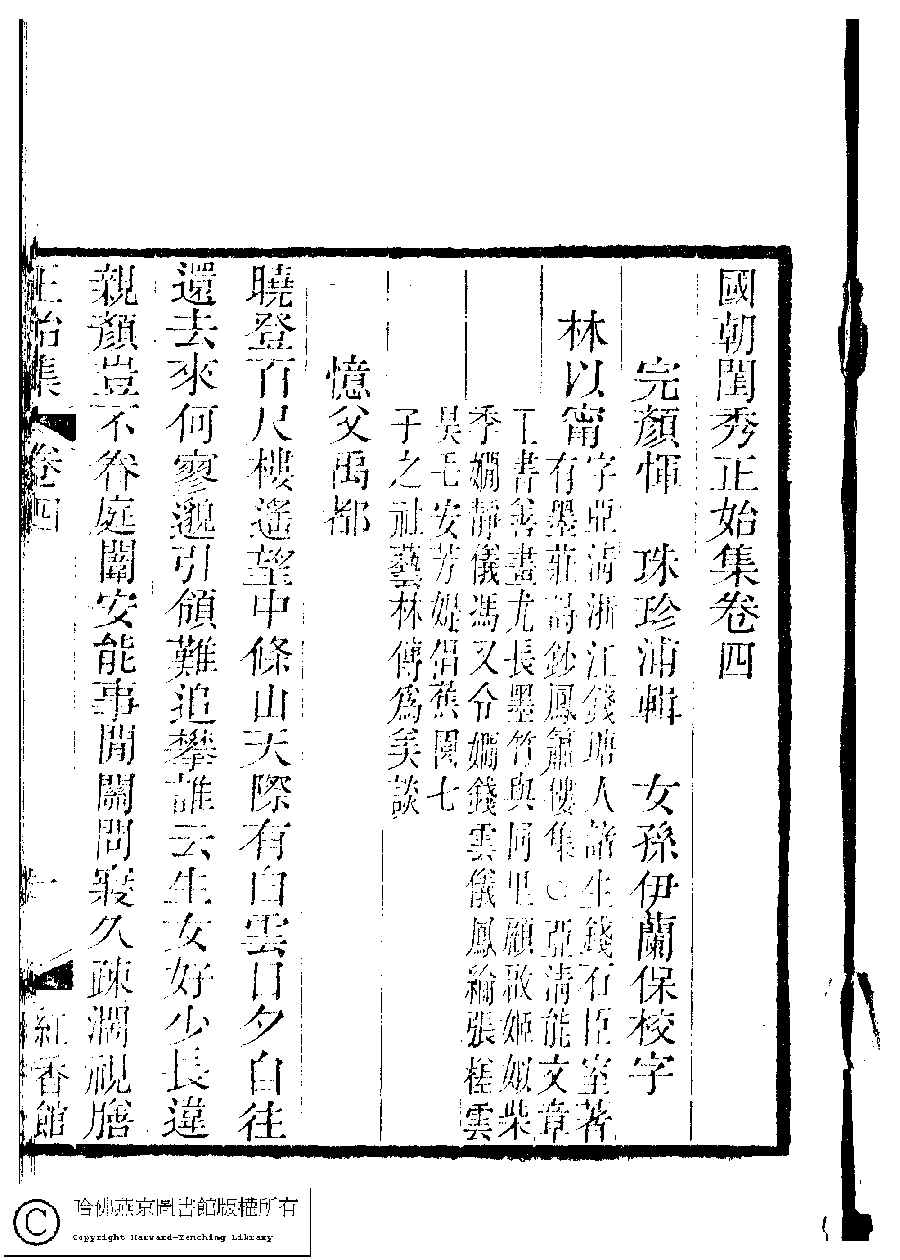 國朝閨秀正始集卷四
完顏惲 珠珍浦輯 女孫伊蘭保校字
林以甯
字亞清浙江錢塘人諸生錢石臣室著
有墨莊詩鈔鳳簫樓集○亞清能文章
工書善畫尤長墨竹與同里顧啟姬姒柴
季嫻靜儀馮又令嫻錢雲儀鳳綸張槎雲
昊毛安芳媞倡蕉園七
子之社藝林傳為美談
憶父禹都
曉登百尺樓遙望中條山天際有白雲日夕自往
還去來何寥邈引領難追攀誰云生女好少長違
親顏豈不眷庭闈安能事閒關問寢久疎濶視膳
正始集 卷四 一 紅香館
哈佛燕京圖書館版權所有
Copyright Harvard-Yenching Library